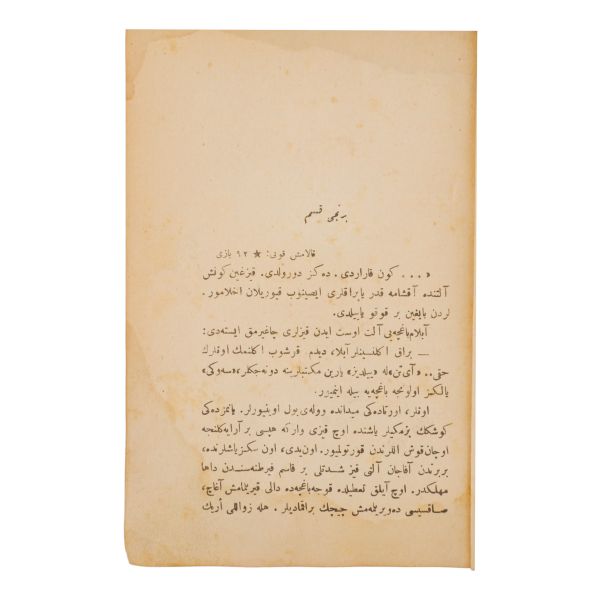 برنجی قسم
قالامش قونی: ★ ۹۲ یازی
« ... کون قاراردی. دەکز دورولدی. قیزغین کونش
آلتندە آقشامە قدر یاپراقلری ایصینوب قیوریلان اخلامور.
لردن بایغین بر قوقو یاییلدی.
آبلام باغچەیی آلت اوست ایدن قیزلری چاغیرمق ایستەدی:
— براق اکلنسینلر آبلا، دیدم قرشوب اکلنمك اونلرك
حقی.. «آی تن» لە «ییلدیز» یارین مکتبلرینە دونەجکلر، «سەوکی»
یالکز اولونجە باغچەیە بیلە اینمیور.
اونلر، اورتادەکی میداندە وولەی بول اوینیورلر. یانمزدەکی
کوشکك یزمکیلر یاشندە اوچ قیزی وارکە هپسی بر آرایەکلنجە
اوچان قوش اللرندن قورتولمیور. اون یدی، اون سکز یاشلرندە،
بربرندن آفاجان آلتی قیز شدتلی بر قاسم فیرطنەسندن داها
مهلکدر. اوچ آیلق تعطیلدە قوجە باغچەدە دالی قیریلمامش آغاچ،
صاقسیسی دەوریلمەمش چیچك براقمادیلر. هلە زواللی اریك